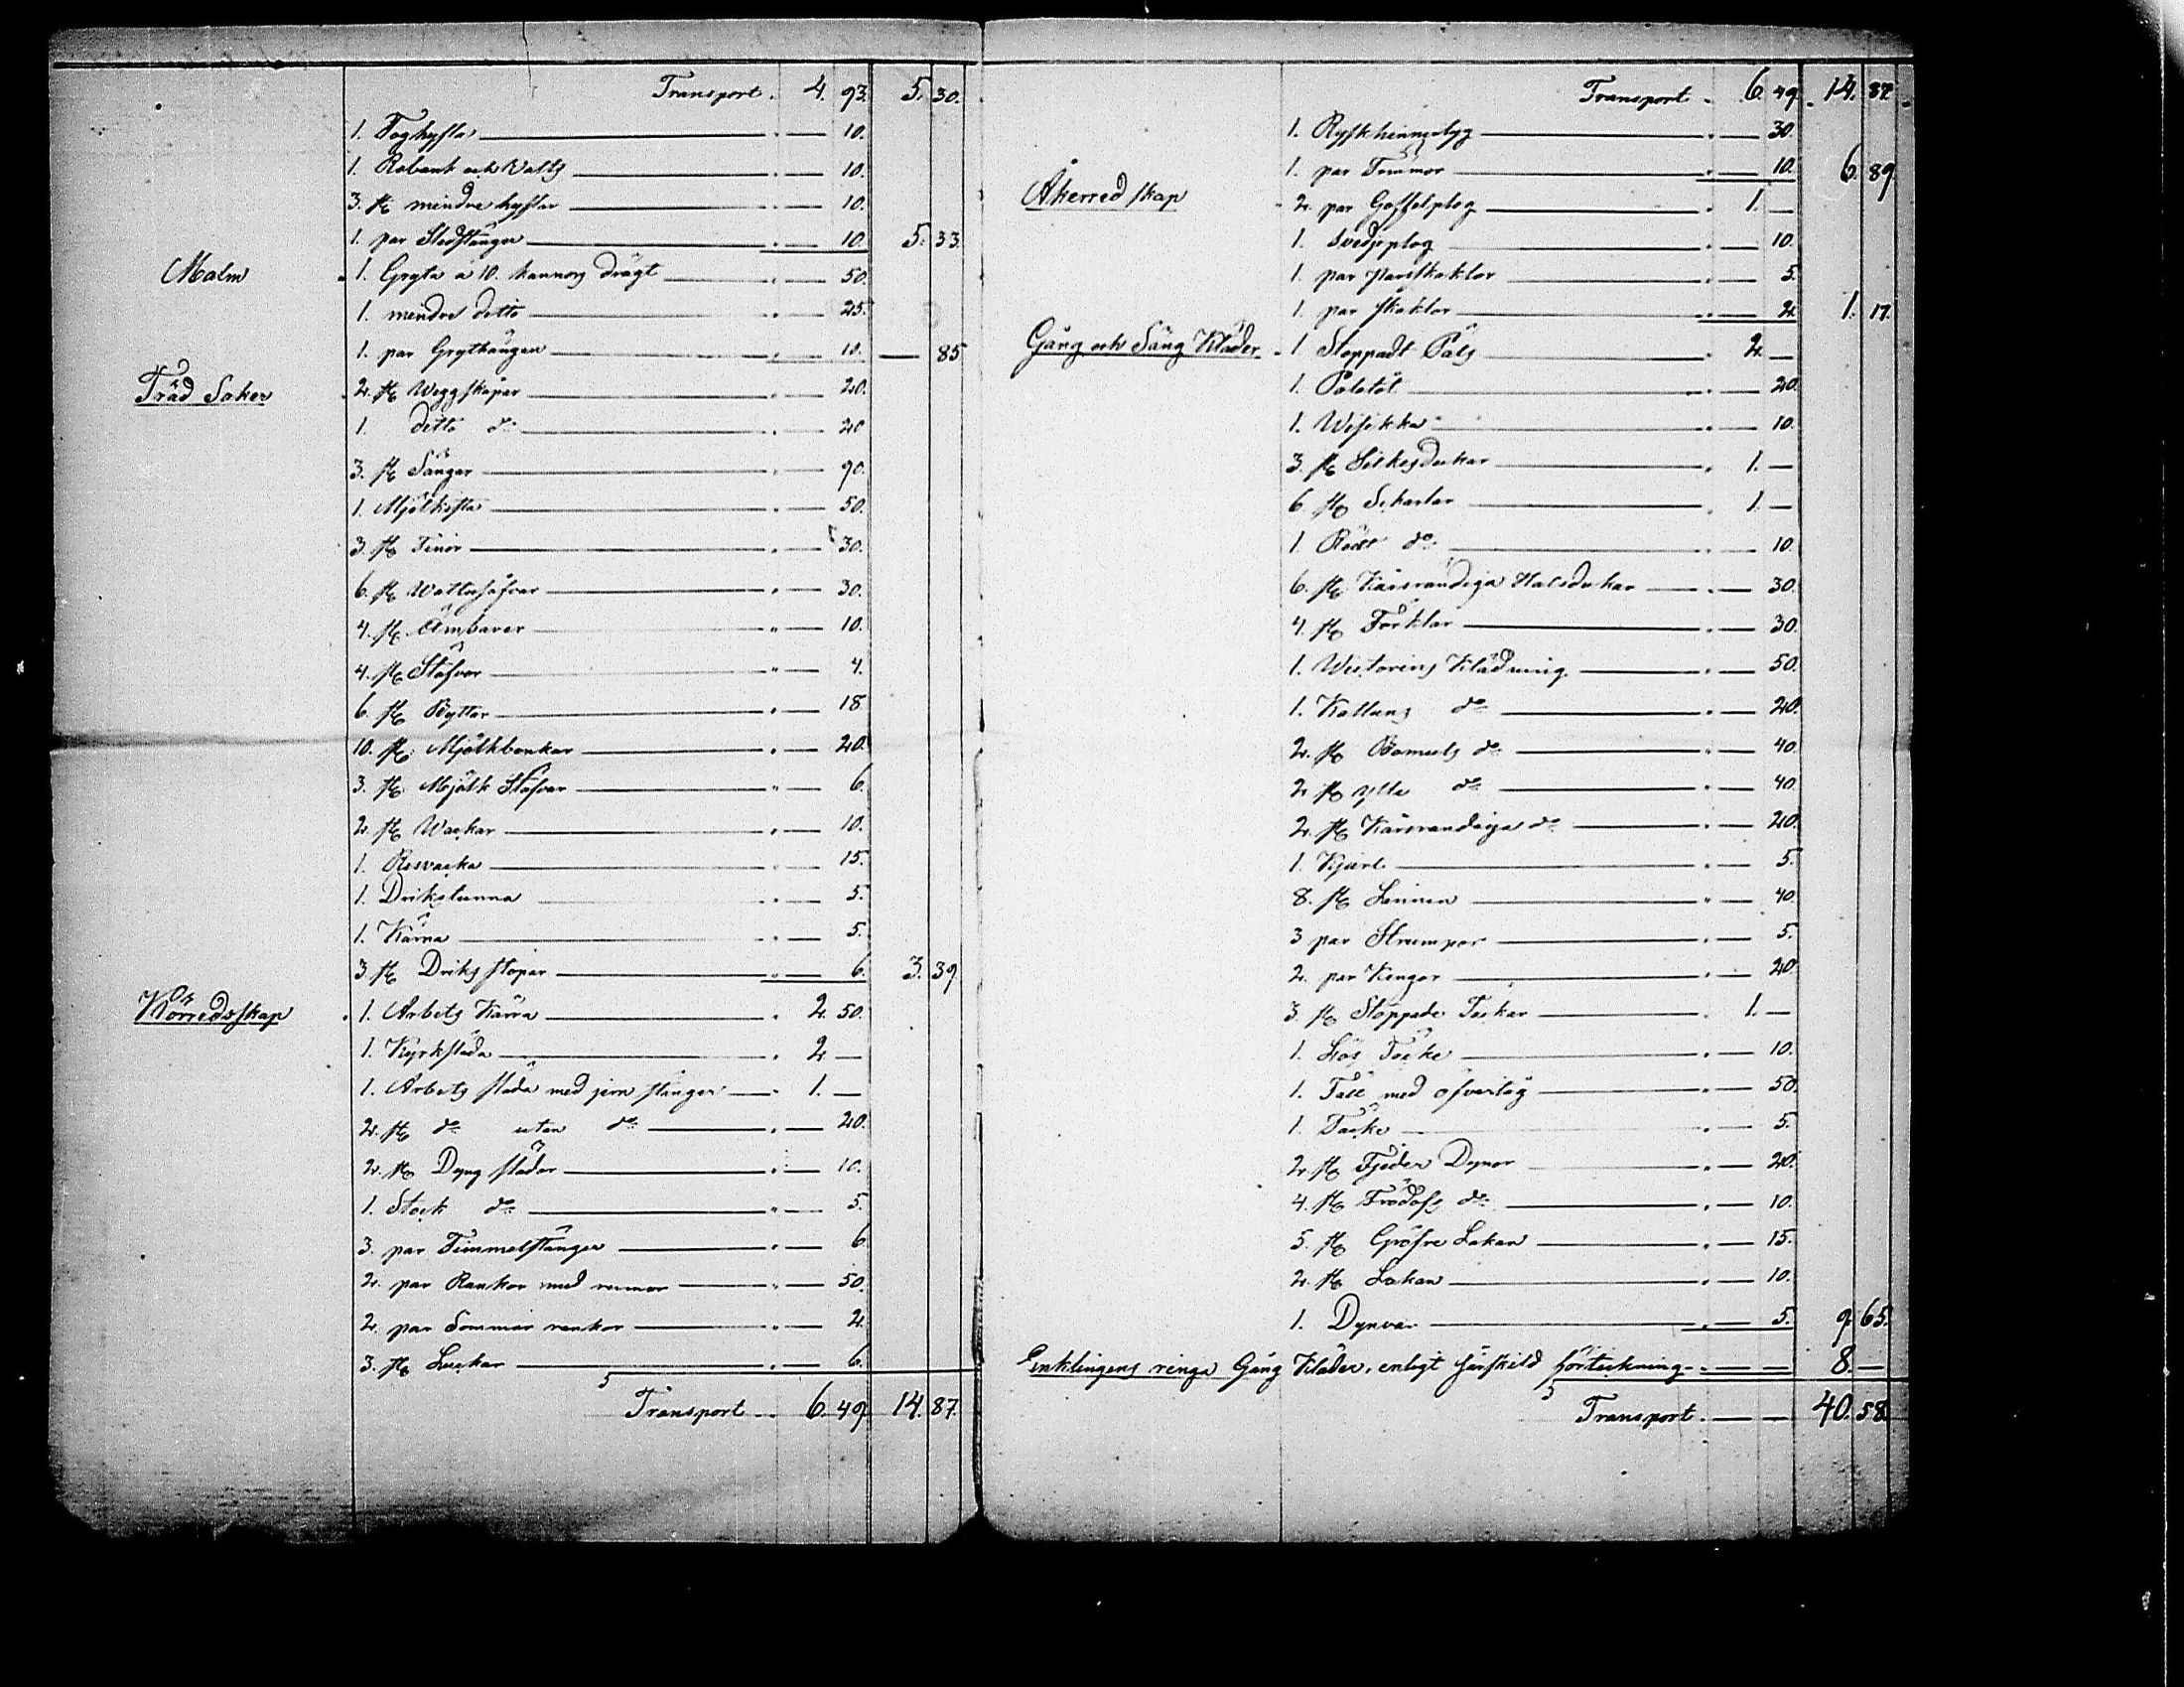 Transport. 4. 93. 5. 30.
1. Foghyfla 10.
1. Robank och Valts 10.
3. st mindre hyflar 10.
1. par Stedstänger 10. 5. 33.
Malm 1. Gryta a 10. kannors drägt 50.
1. mindre detto 25.
1. par Grythängen 10. — 85
Träd Saker 2. st Wäggskåpar 20.
1. ditto do 20
3. st Sängar 90.
1. Mjölkista 50.
3. st Tinor 30.
6. st Wattusåfvar 30.
4. st Ämbarer 10.
4. st Stäfvor 4.
6. st Byttor 18
10. st Mjölkbonkar 20.
3. st Mjölk Stäfvor 6.
2. st Wackar 10.
1. Resvacka 15.
1. Drikstunna 5.
1. Kärna 5.
3. st Driks stopar 6. 3. 39.
Körredskap 1. Arbets Kärra 2. 50.
1. Kyrksläda 2. —
1. Arbets släda med jern stänger 1. —
2. st do utan do 20.
2. st Dyng slädar 10.
1. Stock do 5.
3. par Timmelstänger 6
2. par Rankor med remmar 50.
2. par Sommar rankor 2.
3. st Luckor 6.
Transport 6. 49. 14. 87.
Transport 6. 49. 14. 87.
1. Ryssk 30.
1. par Tömmor 10. 6. 89
Åkerredskap 2. par Gaffelplog 1. —
1. Svedjeplog 10.
1. par Parskaklor 5.
1. par Skaklor 2. 1. 17.
Gång och Säng Kläder 1. Stoppadt Päls 2. —
1. Paletot 20.
1. 10.
3. st Silkesdukar 1. —
6. st Scharlar 1. —
1. Rödt do 10.
6. st Kårsrandiga Halsdukar 30.
4. st Förklär 30.
1. Wictorins Klädning 50.
1. Kattuns do 20.
2. st Bomuls do 40.
2 st ylle do 40.
2. st Kårsrandiga do 20.
1. Kjort 5.
8. st Linnen 40
3 par Strumpor 5.
2. par Kengor 20
3. st Stoppade Täcken 1. —
1. Lös Täcke 10.
1. Fäll med öfvertyg 50.
1. Täcke 5.
2. st Fjeder Dynor 20.
4. st do 10.
5. st Gröfre Lakan 15.
2. st Lakan 10.
1. Dynvar 5. 9. 65.
Enklingens ringa Gång Kläder, enligt särskild förteckning 8. —
Transport. 40. 58.